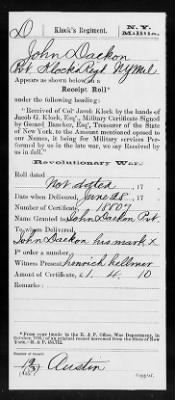 D Klock's Regiment. N.Y. Militia.
John Daekon
Pvt. Klock's Regt. NY Mil.
Appears as shown below on a
Receipt Roll*
under the following heading:
"Received of Col Jacob Klock by the hands of
Jacob G. Klock, Esq., Military Certificate Signed
by Gerard Bancker, Esq., Treasurer of the State
of New York, to the Amount mentioned opposed to
our Names, it being for Military services Performed
by us in the late war, we say Received by
us in full."
Revolutionary War.
Roll dated
Not dated , 17
Date when Delivered, June 28 , 17
Number of Certificate, 18807
Name Granted to John Daekon Pvt.
To whom Delivered
John Daekon his mark X
P order a number
Witness Present henrich hellmer
Amount of Certificate, £1. 4. 10
Remarks:
Number of record:
Austin
Copyist.